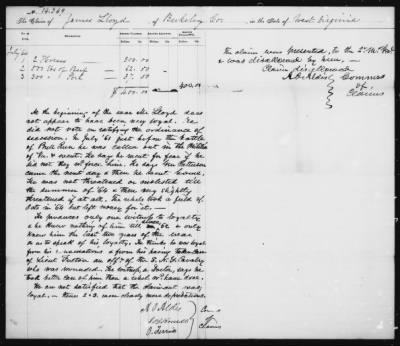 No. 14,369
The Claim of James Lloyd of Berkeley Co. in the State of West Virginia
1 2 Horses 300.00
2 500 lbs of Beef 62.00
3 300 " Pork 37.00
$400.00
400.00
The claim was presented to the 2d
& was disallowed by him.
Claim disapproved
A. O. Aldis
Commrs
of
Claims
At the beginning of the war Mr Lloyd does
not appear to have been very loyal. He
did not vote on ratifying the ordinance of
secession. In July '61 just before the battle
of Bull Run he was called out in the Militia
of Va. & went. He says he went for fear if he
did not they would force him. He says Gen Patterson
came the next day & then he went home.
He was not threatened or molested till
the summer of '64 & then very slightly
threatened if at all. The rebels took a field of
oats in '64 but left money for it.
He produces only one witness to loyalty
& he knew nothing of him till '62 & only
knew him the last two years of the war
so as to speak of his loyalty. He thinks he was loyal
from his conversations & from his having taken care
of Lieut an off. of the Cavalry
who was wounded. The witness, a Doctor, says he
took better care of him than a rebel would have done.
We are not satisfied that the claimant was
loyal.
A. O. Aldis
O. Ferriss
Comrs
of
Claims